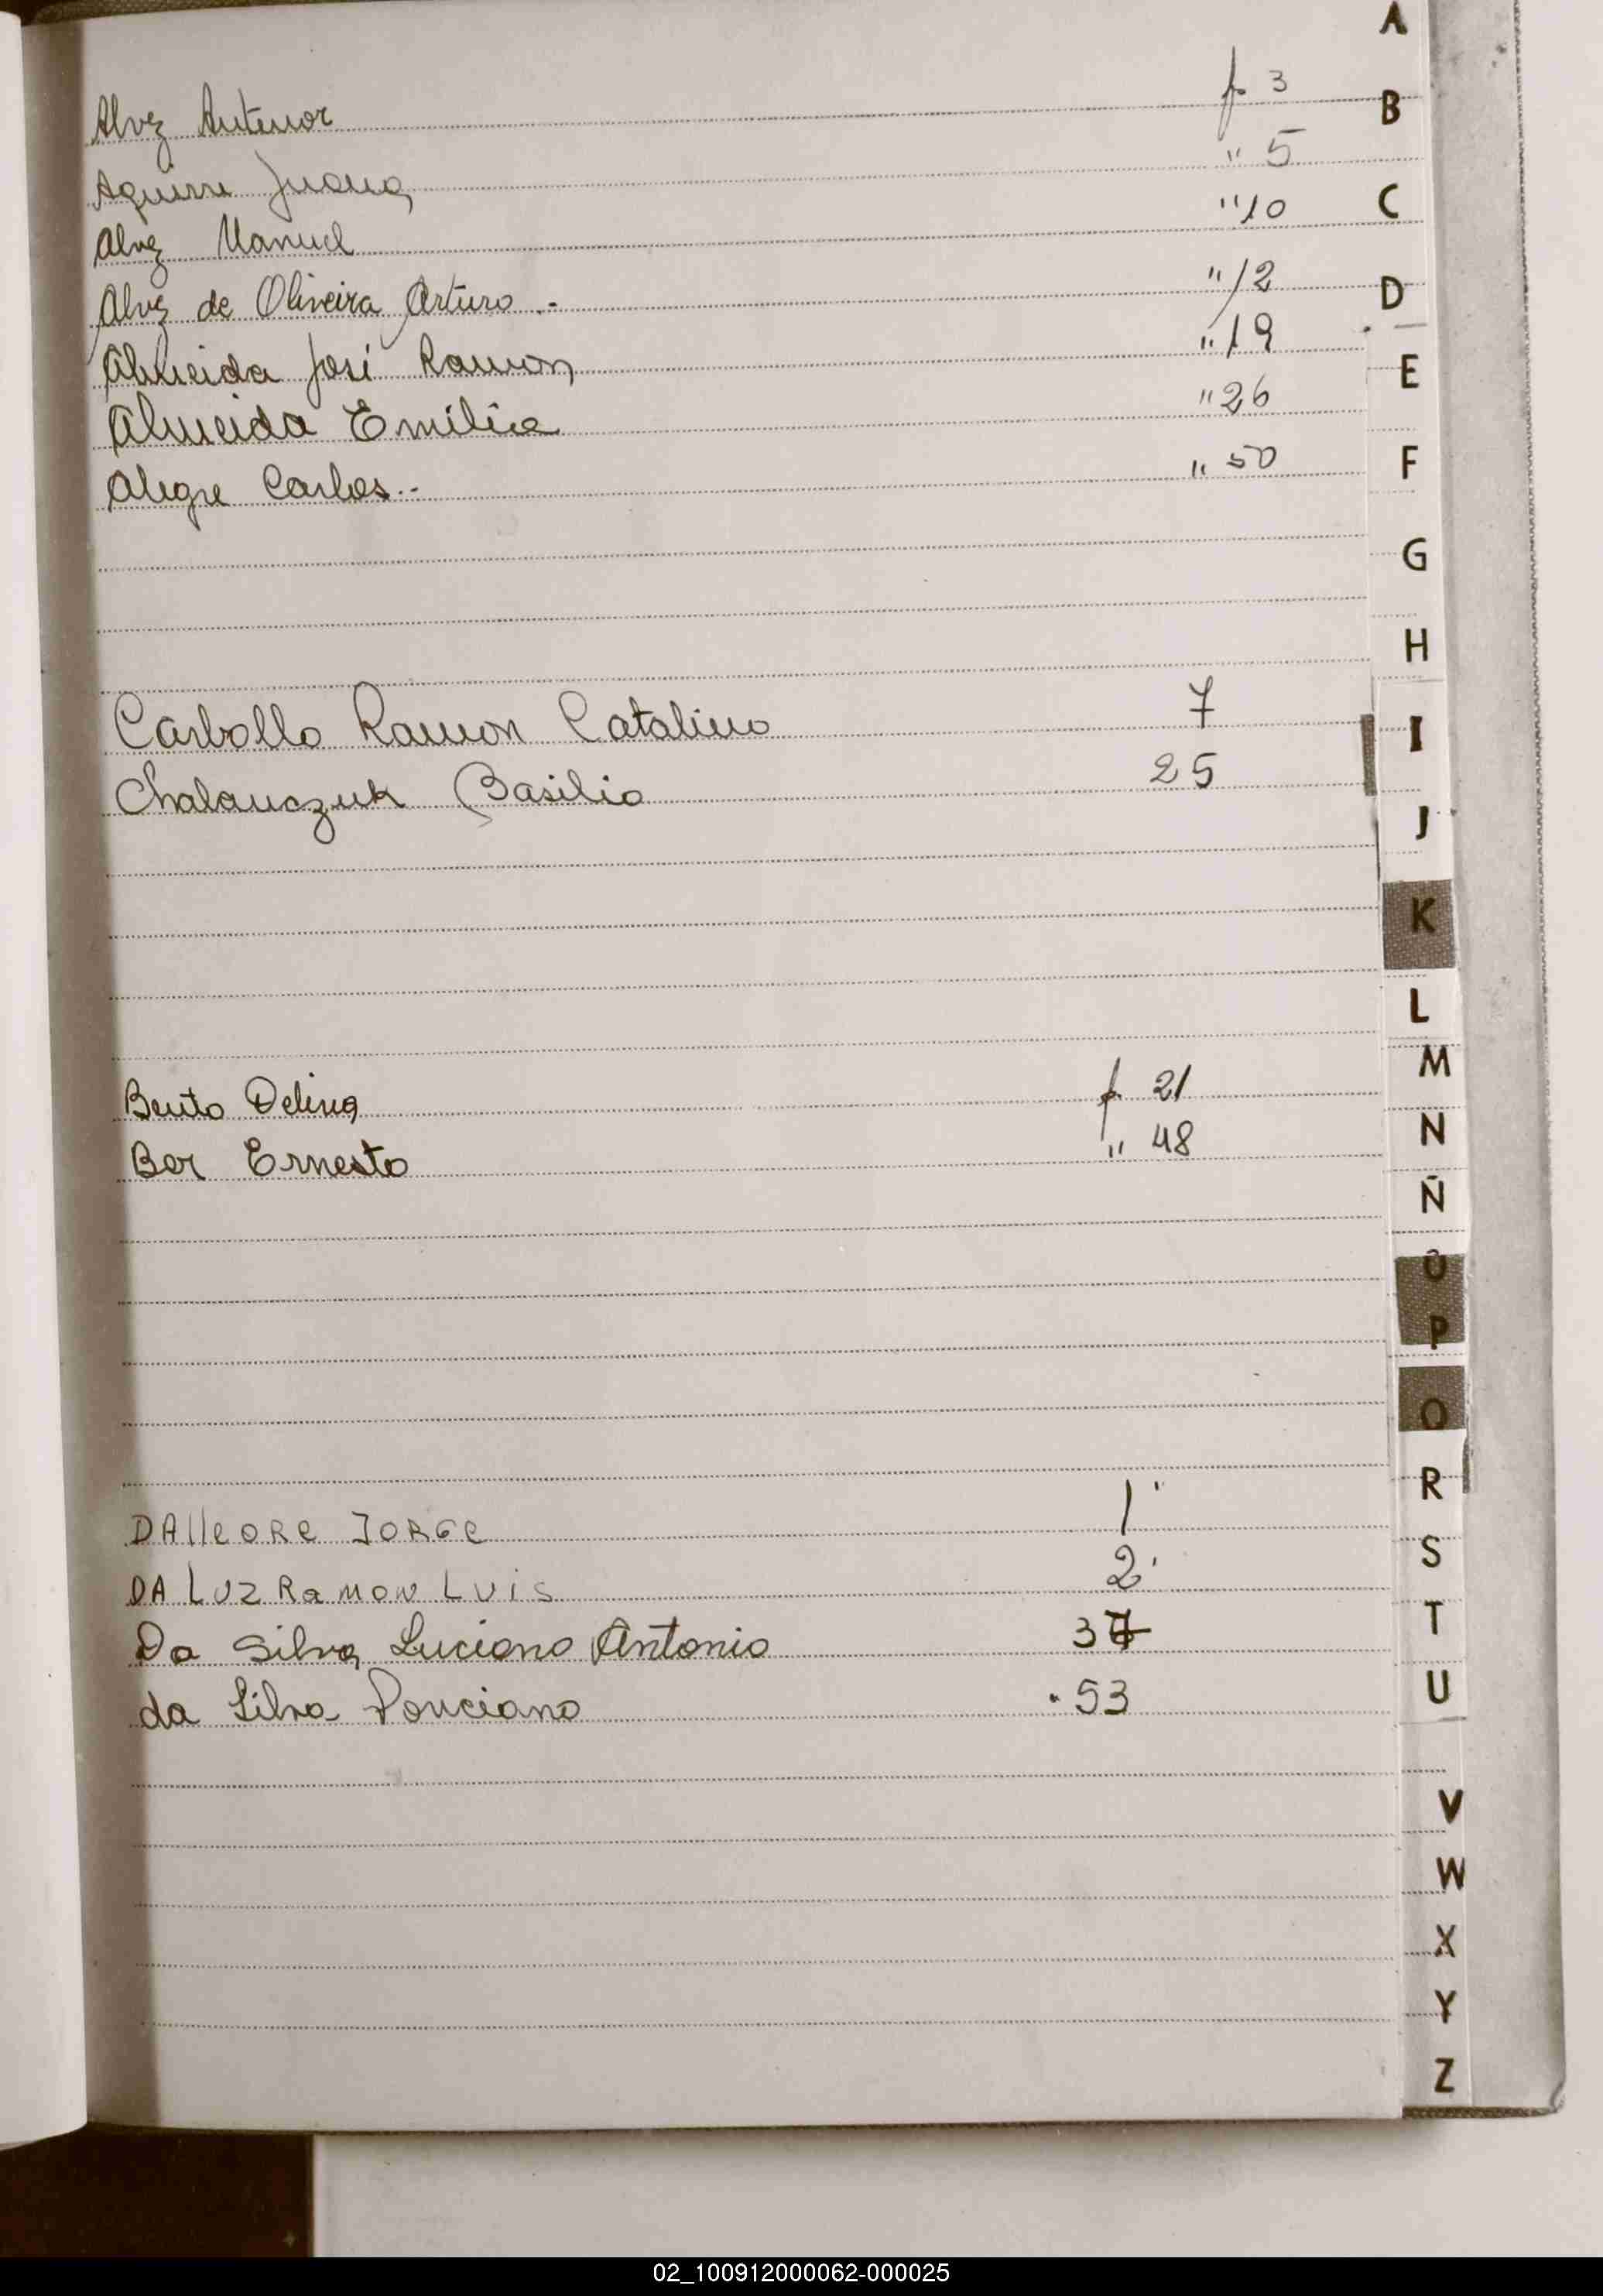 Alvez Antenor f. 3
Aguirre Juana " 5
Alvez Manuel " 10
Alvez de Oliveira Arturo.- " 12
Almeida José Ramon " 19
Almeida Emilia " 26
Alegre Carlos.- " 50
Carballo Ramon Catalino 7
Chalanczuk Basilio 25
Bento Delina f. 21
Bor Ernesto " 48
DAlleORe JORGe 1"
DA LUZ RaMON LUiS 2'
Da Silva Luciano Antonio 37
da Silva Ponciano " 53
A
B
C
D
E
F
G
H
I
J
K
L
M
N
Ñ
O
P
Q
R
S
T
U
V
W
X
Y
Z
02_100912000062-000025